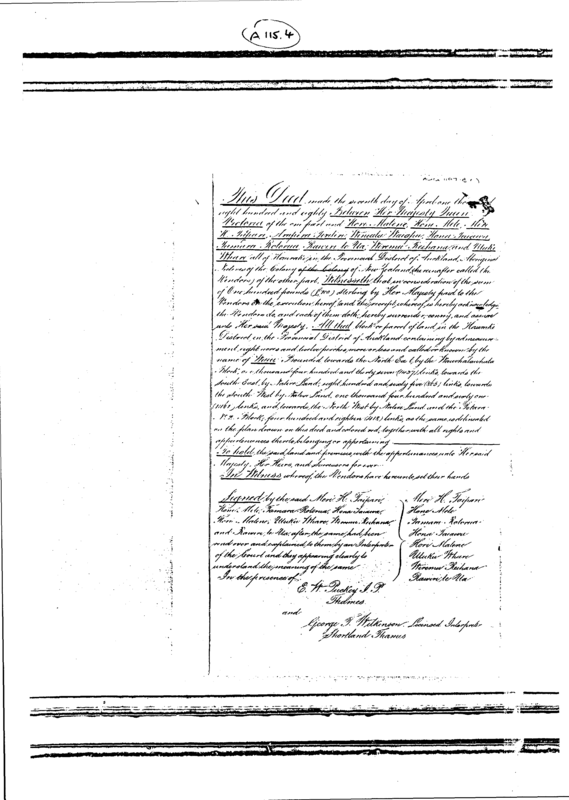 A 115.4
This Deed made the seventh day of April one thou
eight hundred and eighty Between Her Majesty Queen
Victoria of the one part and Hori Matene, Hone Mete, Meri
H. Taipari,
all of Hauraki, in the Provincial District of Auckland, Aboriginal
Natives of the Colony of the Colony of New Zealand (hereinafter called the
Vendors) of the other part. Witnesseth that in consideration of the sum
of One hundred pounds (£100) sterling by Her Majesty paid to the
Vendors on the execution hereof (and the receipt whereof is hereby acknowledged)
the Vendors do, and each of them doth, hereby surrender, convey, and assure
unto Her said Majesty. All that block or parcel of land in the Hauraki
District in the Provincial District of Auckland containing by admeasure-
ment eight acres and twelve perches, more or less and called or known by the
name of Bounded towards the North East, by the
Block, one thousand four hundred and thirty seven (1437) links, towards the
South East, by Native Land, eight hundred and sixty five (865) links, towards
the South West by Native Land, one thousand four hundred and sixty one
(1461) links, and towards the North West by Native Land and the
Block, four hundred and eighteen (418) links, as the same is delineated
on the plan drawn on this deed and colored red, together with all rights and
appurtenances thereto belonging or appertaining
To hold the said land and premises with the appurtenances, unto Her said
Majesty, Her Heirs, and Successors for ever
In Witness whereof, the Vendors have hereunto set their hands
Signed by the said Meri H. Taipari, Meri H. Taipari
Hone Mete, Tamara Rotorua, Hone Hone Mete
Hori Matene, Uteku Whare, Wiremu
and Rawiri te Ua, after the same had been Hone
read over and explained to them by an Interpreter Hori Matene
of the Court and they appearing clearly to Whare
understand the meaning of the same Wiremu
In the presence of Rawiri te Ua
E. W. Puckey J.P.
Thames
and
George F. Wilkinson Licensed Interpreter
Shortland Thames